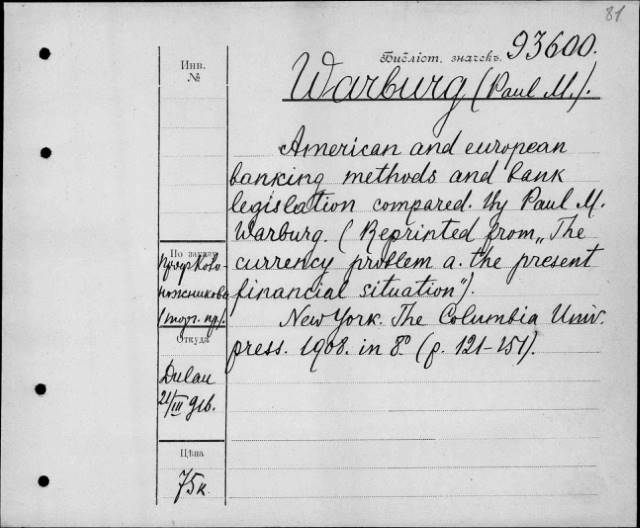 81
Библіот. значекъ. 93600.
Warburg (Paul M.).
American and european
banking methods and bank
legislation compared. By Paul M.
Warburg. (Reprinted from „The
currency problem a. the present
financial situation").
New York. The Columbia Univ.
press. 1908. in 8º (p. 121–151).
Инв.
№
По заказу
ножникова
Откуда
Dulau
21/III 916.
Цѣна
75к.